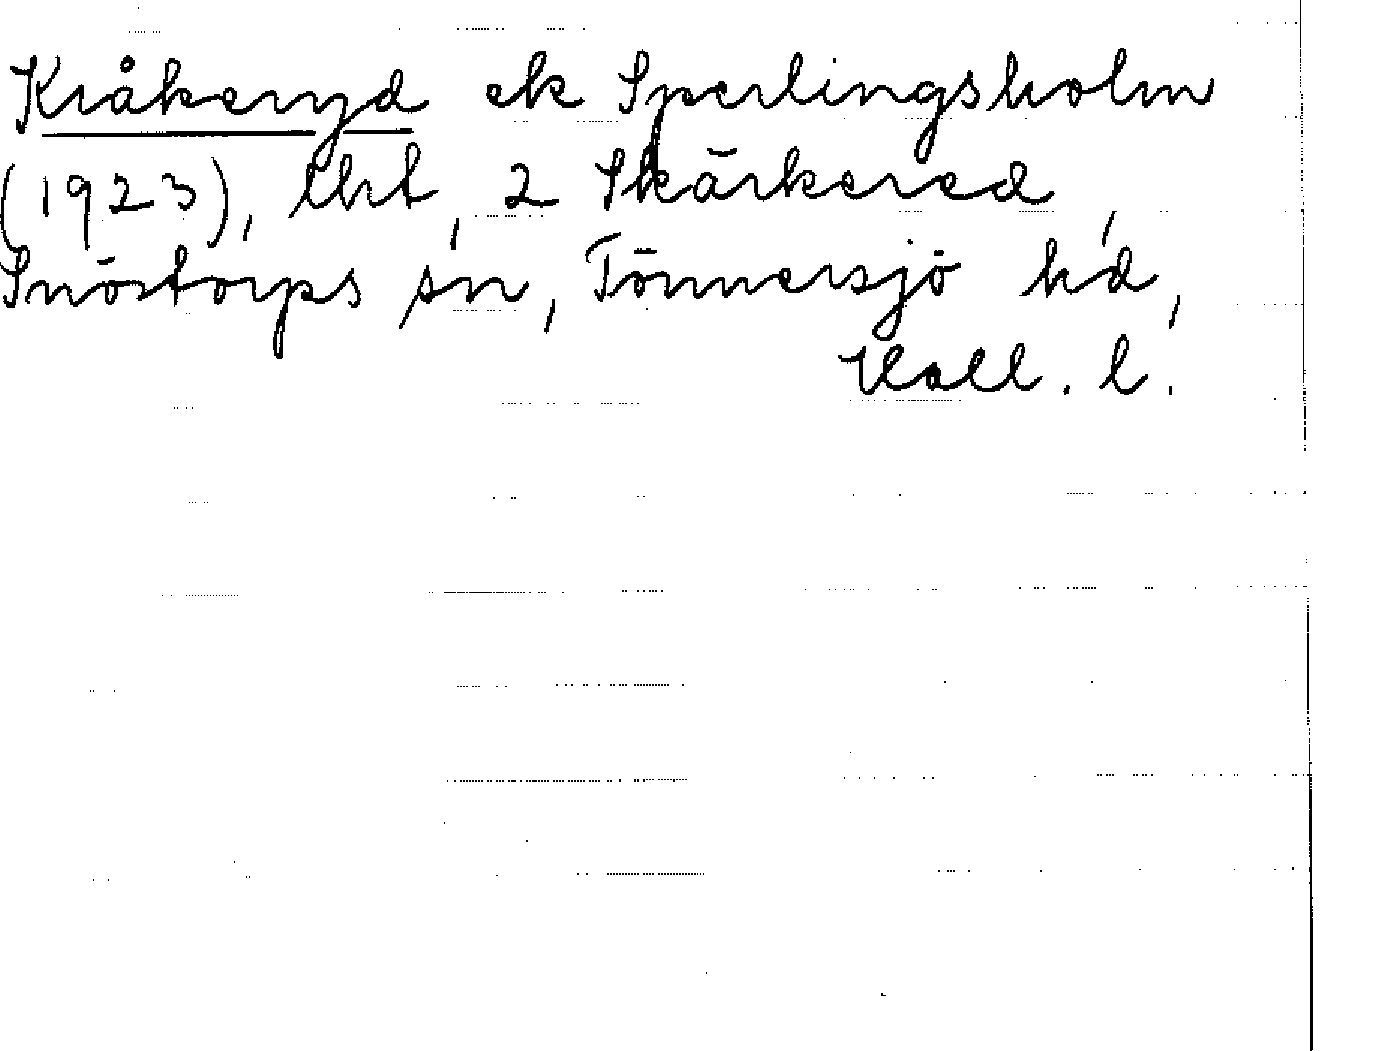 Kråkeryd ek Sperlingsholm
(1923), lht, 2 Skärkered,
Snöstorps sn, Tönnersjö hd,
Hall. l.